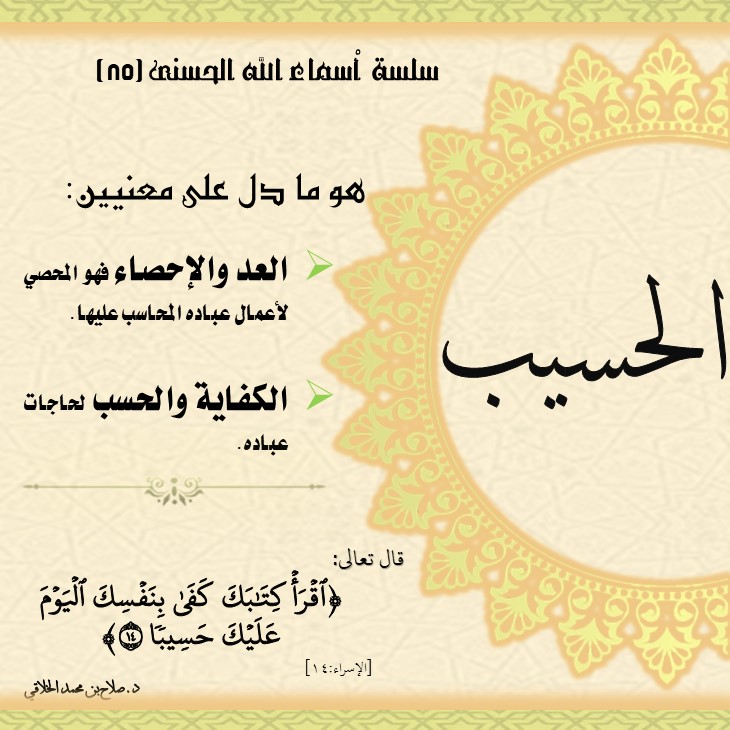 سلسة أسماء الله الحسنى (٨٥)
هو ما دل على معنيين:
العد والإحصاء فهو المحصي
لأعمال عباده المحاسب عليها.
الكفاية والحسب لحاجات
عباده.
الحسيب
قال تعالى:
﴿ٱقْرَأْ كِتَٰبَكَ كَفَىٰ بِنَفْسِكَ ٱلْيَوْمَ
عَلَيْكَ حَسِيبًا ١٤﴾
[الإسراء:١٤]
د.صلاح بن محمد الخلاقي